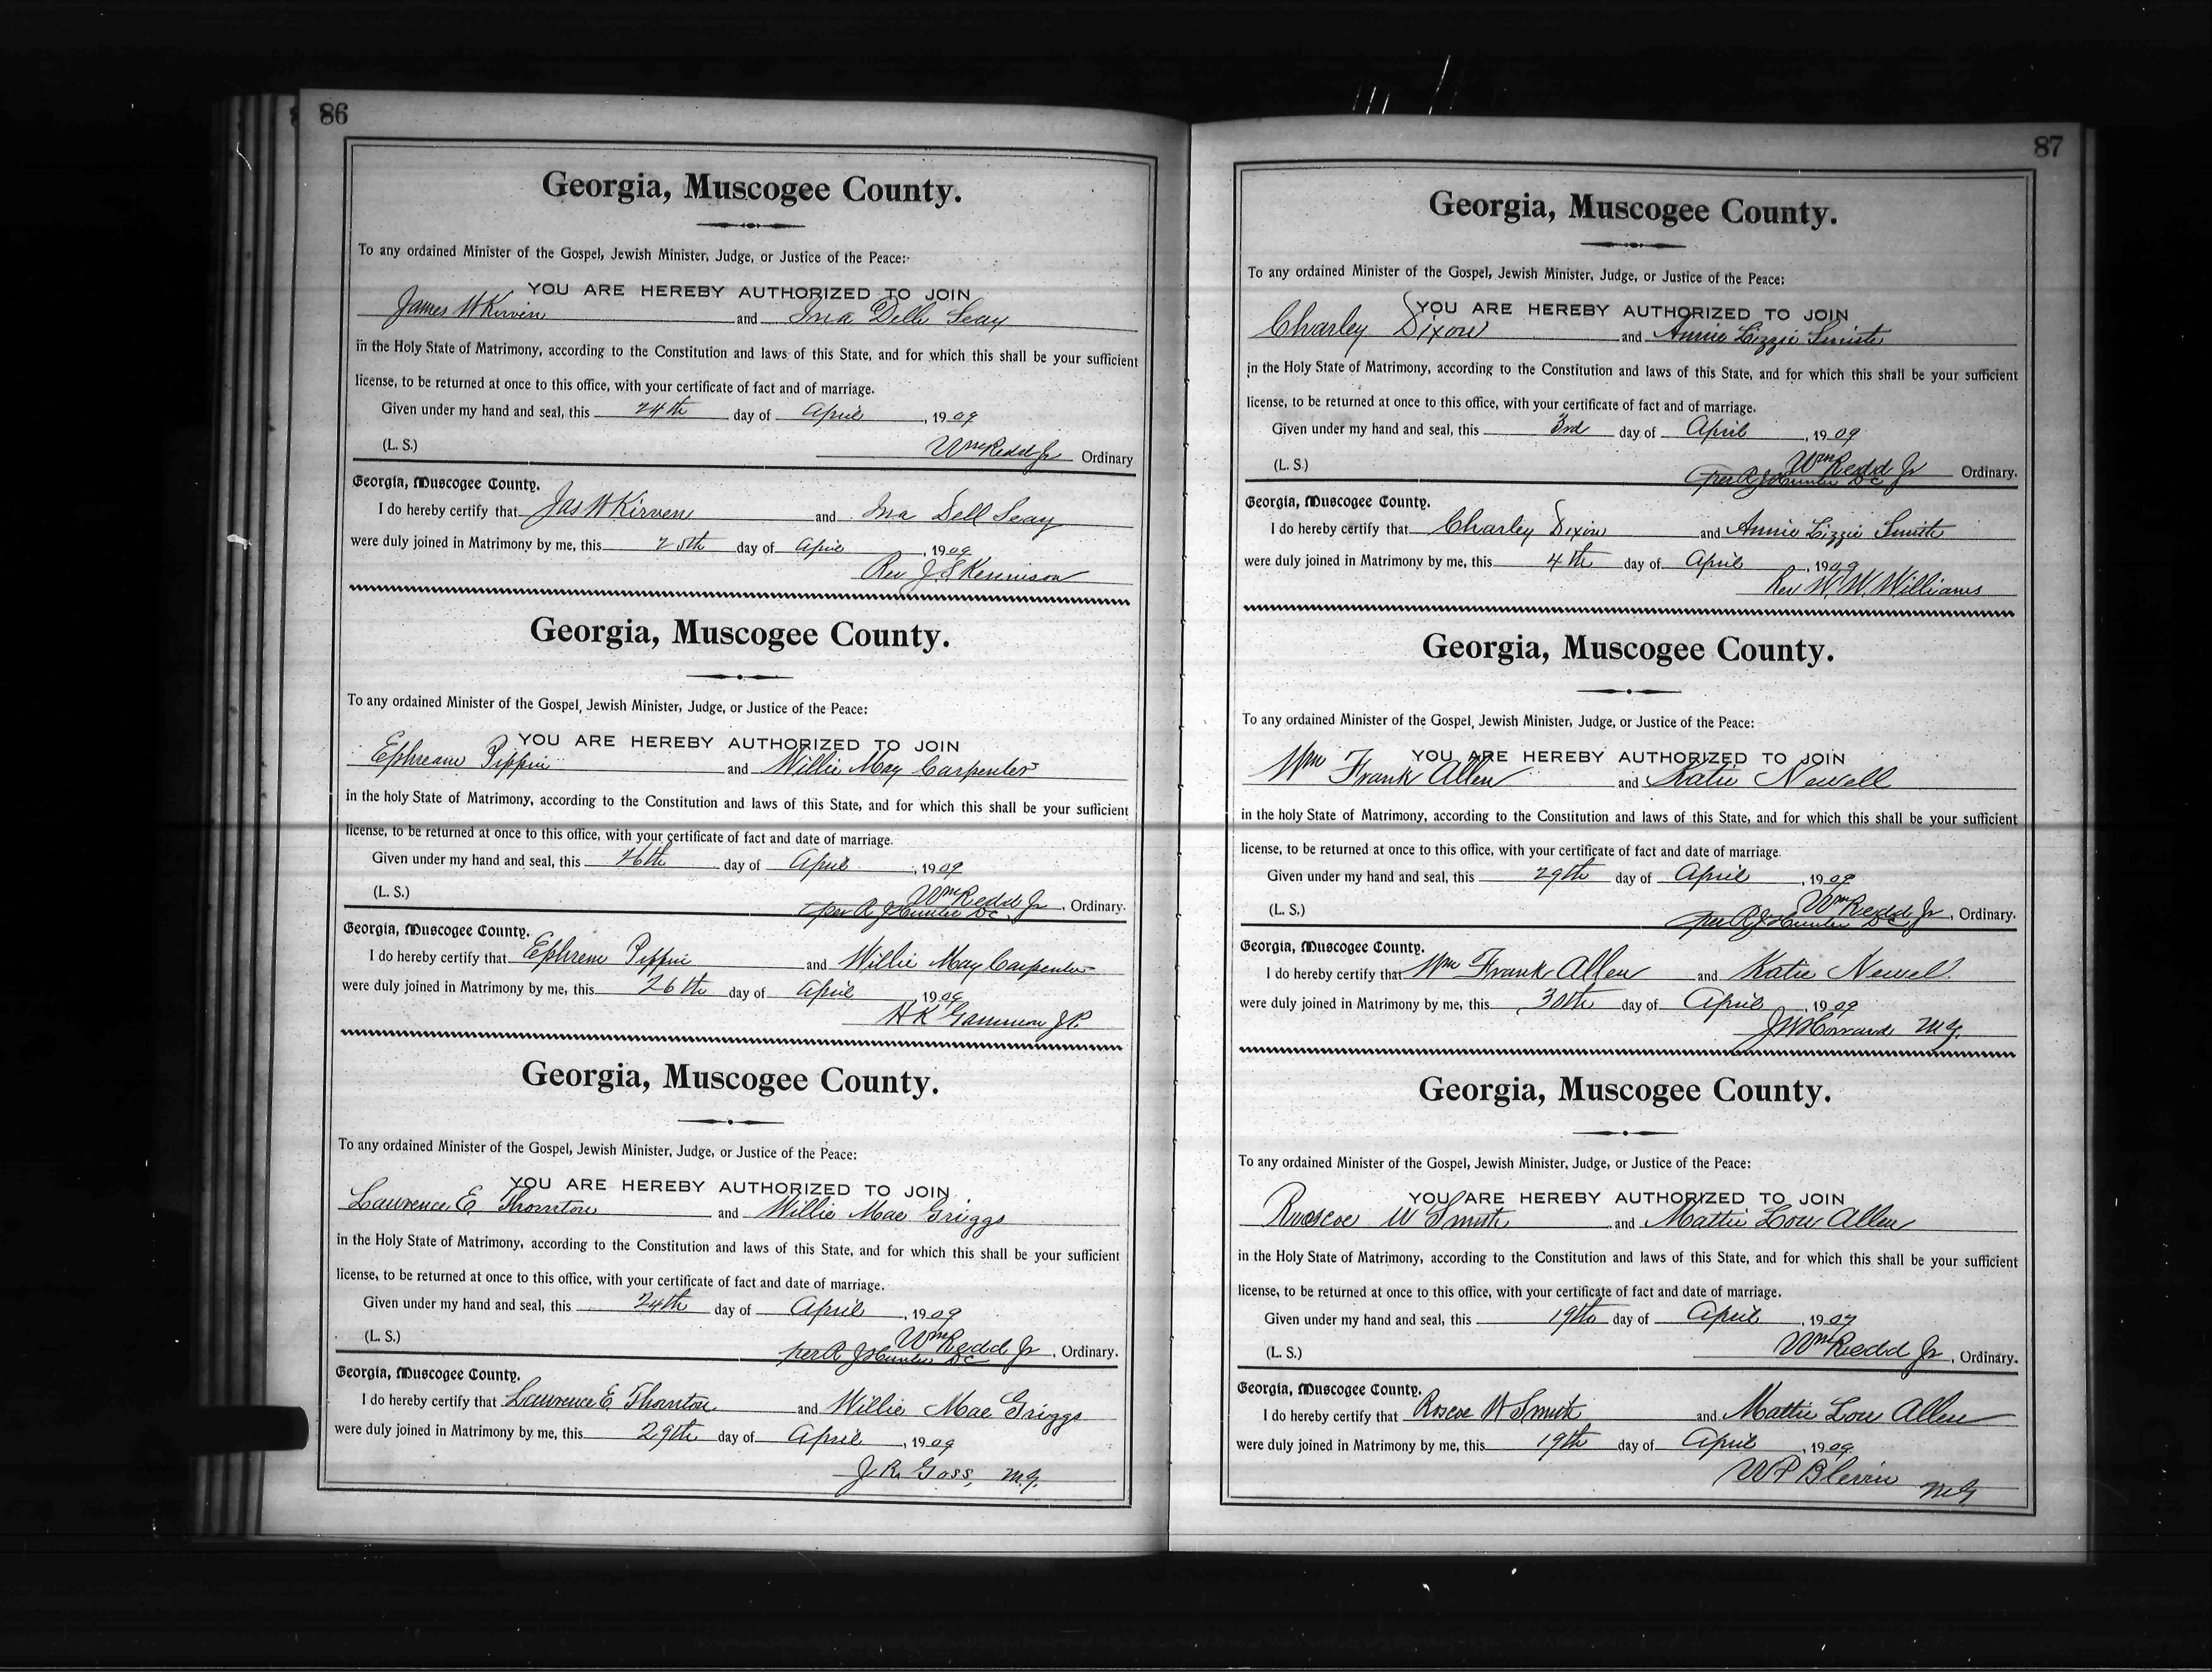 86
Georgia, Muscogee County.
To any ordained Minister of the Gospel, Jewish Minister, Judge, or Justice of the Peace:
YOU ARE HEREBY AUTHORIZED TO JOIN
James W Kirven and Ina Dell Seay
in the Holy State of Matrimony, according to the Constitution and laws of this State, and for which this shall be your sufficient
license, to be returned at once to this office, with your certificate of fact and of marriage.
Given under my hand and seal, this 24th day of April, 1909
(L. S.) Wm Redd Jr Ordinary
Georgia, Muscogee County.
I do hereby certify that Jas W Kirven and Ina Dell Seay
were duly joined in Matrimony by me, this 25th day of April, 1909
Rev J S Kennison
Georgia, Muscogee County.
To any ordained Minister of the Gospel, Jewish Minister, Judge, or Justice of the Peace:
YOU ARE HEREBY AUTHORIZED TO JOIN
Ephream Pippin and Willie May Carpenter
in the holy State of Matrimony, according to the Constitution and laws of this State, and for which this shall be your sufficient
license, to be returned at once to this office, with your certificate of fact and date of marriage.
Given under my hand and seal, this 26th day of April, 1909
(L. S.) Wm Redd Jr, Ordinary.
per R J Hunter DC
Georgia, Muscogee County.
I do hereby certify that Ephrem Pippin and Willie May Carpenter
were duly joined in Matrimony by me, this 26th day of April 1909
H K Gammon J.P.
Georgia, Muscogee County.
To any ordained Minister of the Gospel, Jewish Minister, Judge, or Justice of the Peace:
YOU ARE HEREBY AUTHORIZED TO JOIN
Lawrence E. Thornton and Willie Mae Griggs
in the Holy State of Matrimony, according to the Constitution and laws of this State, and for which this shall be your sufficient
license, to be returned at once to this office, with your certificate of fact and date of marriage.
Given under my hand and seal, this 24th day of April, 1909
(L. S.) Wm Redd Jr, Ordinary.
per R J Hunter DC
Georgia, Muscogee County.
I do hereby certify that Lawrence E. Thornton and Willie Mae Griggs
were duly joined in Matrimony by me, this 29th day of April, 1909
J. R. Goss, M.G.
87
Georgia, Muscogee County.
To any ordained Minister of the Gospel, Jewish Minister, Judge, or Justice of the Peace:
YOU ARE HEREBY AUTHORIZED TO JOIN
Charley Dixon and Annie Lizzie Smith
in the Holy State of Matrimony, according to the Constitution and laws of this State, and for which this shall be your sufficient
license, to be returned at once to this office, with your certificate of fact and of marriage.
Given under my hand and seal, this 3rd day of April, 1909
(L. S.) Wm Redd Jr Ordinary.
per R J Hunter DC
Georgia, Muscogee County.
I do hereby certify that Charley Dixon and Annie Lizzie Smith
were duly joined in Matrimony by me, this 4th day of April, 1909
Rev W. W. Williams
Georgia, Muscogee County.
To any ordained Minister of the Gospel, Jewish Minister, Judge, or Justice of the Peace:
YOU ARE HEREBY AUTHORIZED TO JOIN
Wm Frank Allen and Katie Newell
in the holy State of Matrimony, according to the Constitution and laws of this State, and for which this shall be your sufficient
license, to be returned at once to this office, with your certificate of fact and date of marriage.
Given under my hand and seal, this 29th day of April, 1909
(L. S.) Wm Redd Jr, Ordinary.
per R J Hunter DC
Georgia, Muscogee County.
I do hereby certify that Wm Frank Allen and Katie Newel
were duly joined in Matrimony by me, this 30th day of April, 1909
J W Howard M.G.
Georgia, Muscogee County.
To any ordained Minister of the Gospel, Jewish Minister, Judge, or Justice of the Peace:
YOU ARE HEREBY AUTHORIZED TO JOIN
Roscoe W Smith and Mattie Lou Allen
in the Holy State of Matrimony, according to the Constitution and laws of this State, and for which this shall be your sufficient
license, to be returned at once to this office, with your certificate of fact and date of marriage.
Given under my hand and seal, this 19th day of April, 1909
(L. S.) Wm Redd Jr, Ordinary.
Georgia, Muscogee County.
I do hereby certify that Roscoe W Smith and Mattie Lou Allen
were duly joined in Matrimony by me, this 19th day of April, 1909
W P Blevin MG